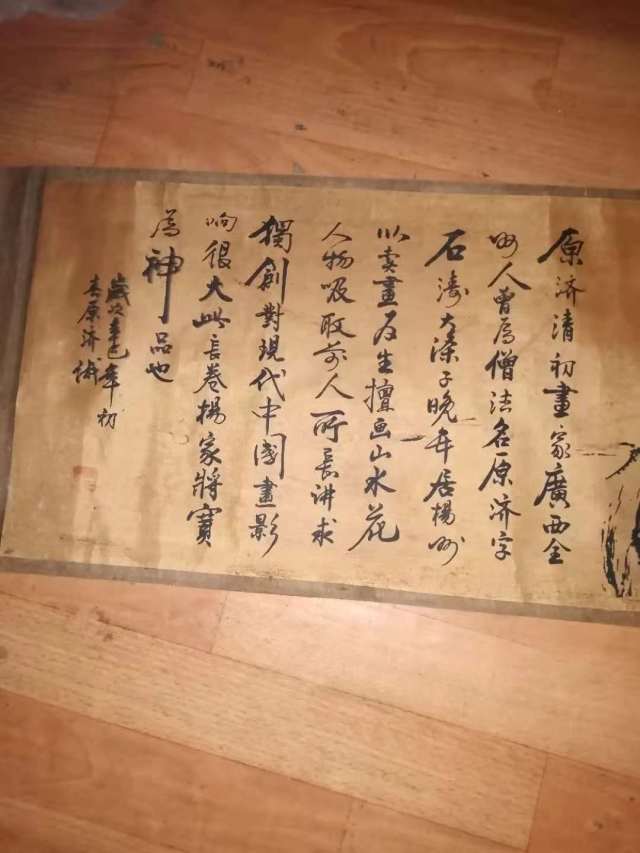 原济清初畫家廣西全
州人曾爲僧法名原济字
石濤大滌子晚年居楊州
以卖畫为生擅画山水花
人物吸取前人所長讲求
獨創對現代中國畫影
响很大此長卷楊家將寶
爲神品也
歲次辛巳年初
原济